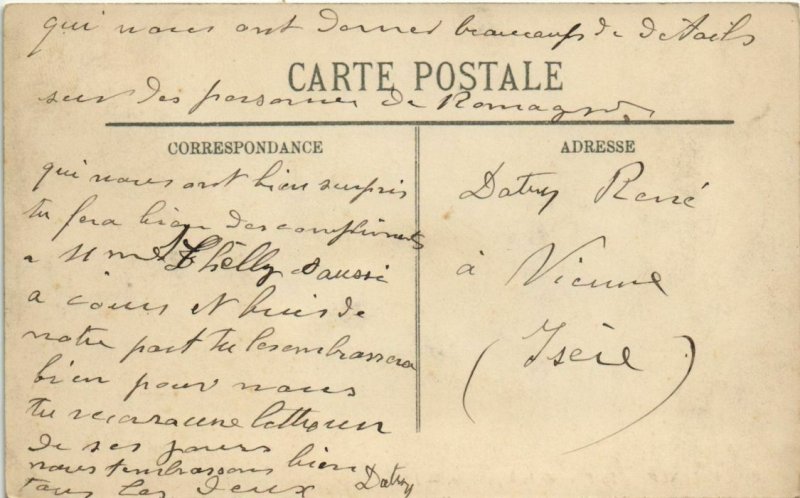 qui nous ont donner beaucoups de détails
CARTE POSTALE
sur des personnes de Romagn
CORRESPONDANCE
qui nous ont bien surpris
tu fera bien des compliments
a Mme Thelly aussi
a et puis de
notre part tu les embrassera
bien pour nous
tu recevra une lettre un
de ses jours
nous t'embrassons bien
tous les deux Datry
ADRESSE
Datry René
à Vienne
(Isère)